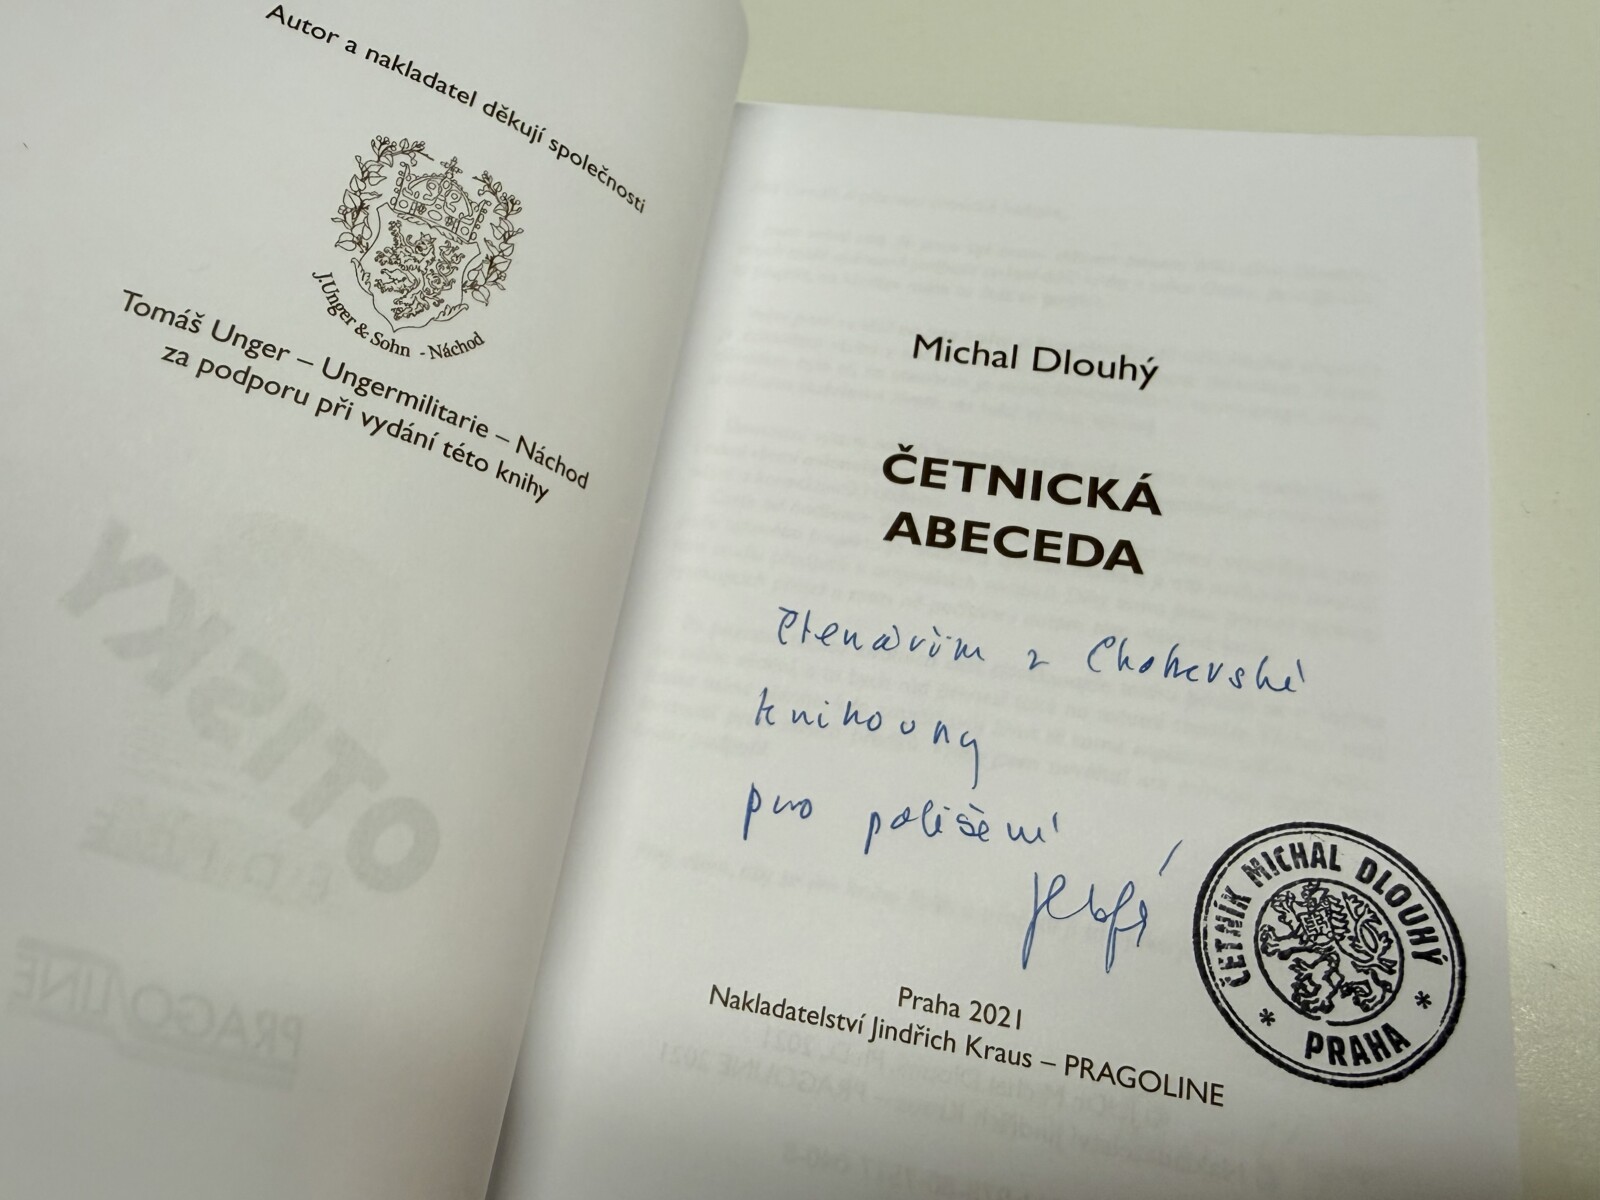 Autor a nakladatel děkují společnosti
J.Unger & Sohn - Náchod
Tomáš Unger – Ungermilitarie – Náchod
za podporu při vydání této knihy
OTISKY
PRAGOLINE
Michal Dlouhý
ČETNICKÁ
ABECEDA
Čtenářům z Chotěvské
knihovny
pro potěšení
ČETNÍK MICHAL DLOUHÝ
* PRAHA *
Praha 2021
Nakladatelství Jindřich Kraus – PRAGOLINE